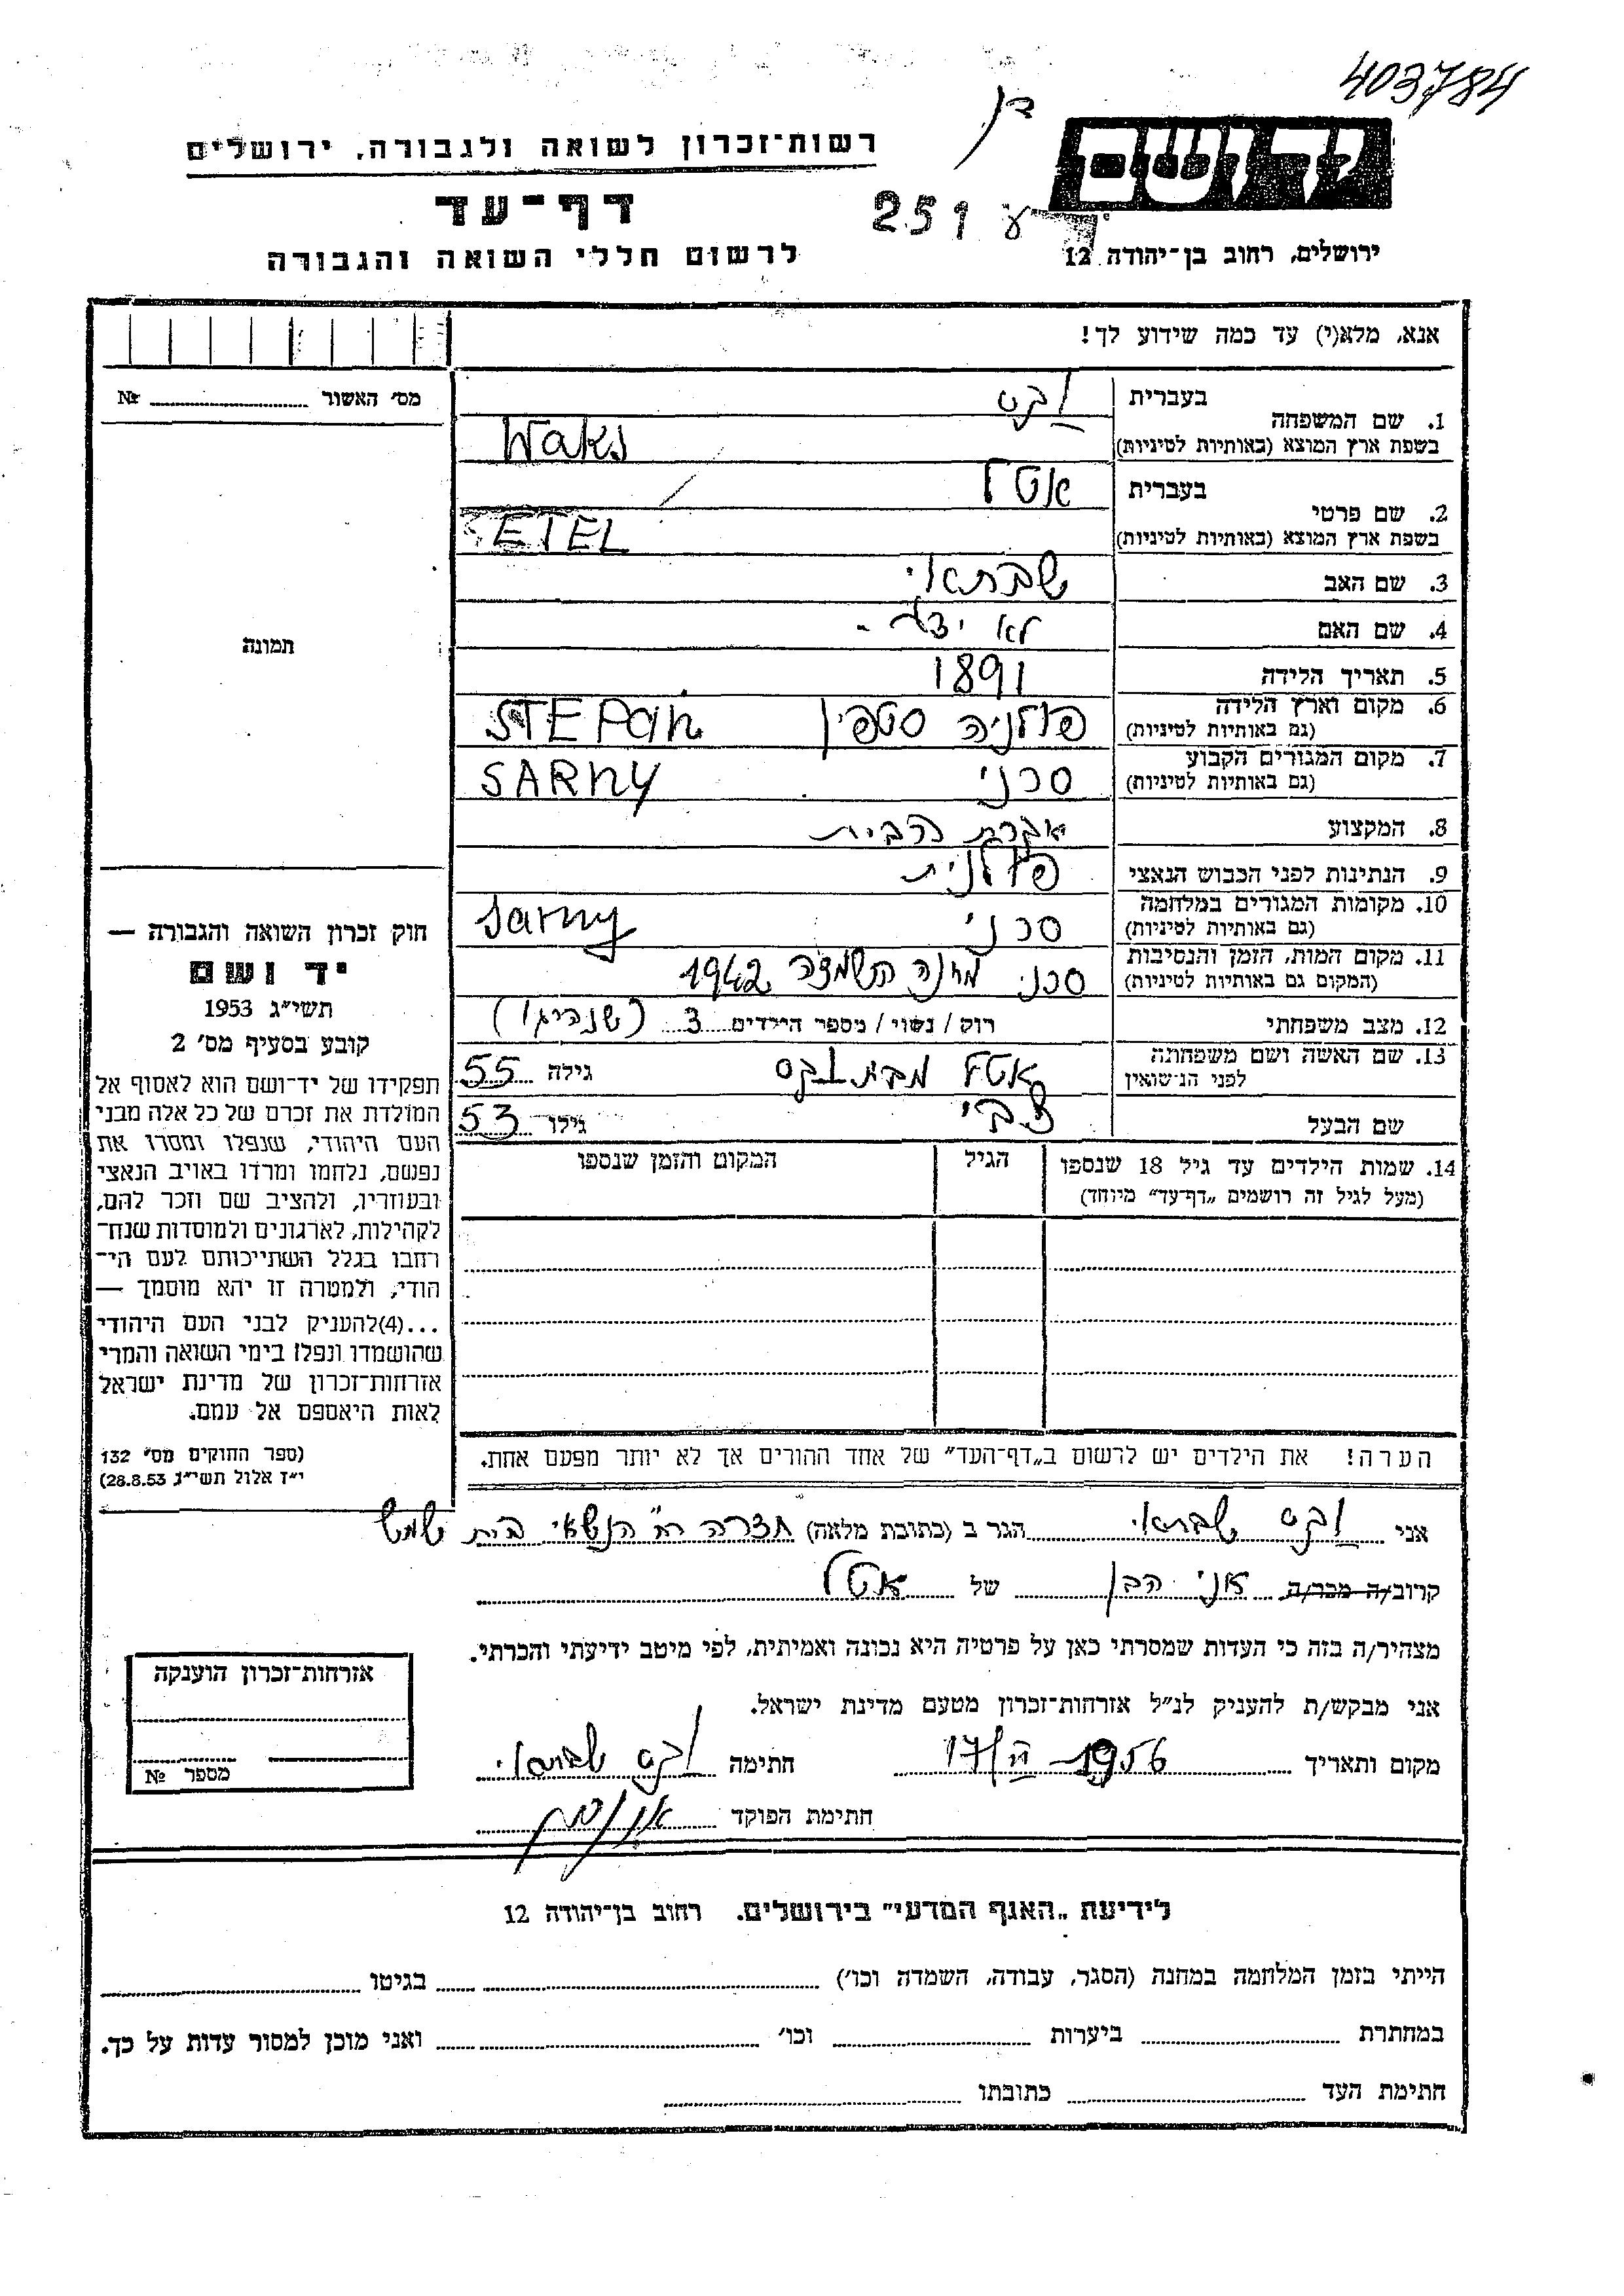 403784
רשות־זכרון לשואה ולגבורה, ירושלים
דף־עד
251 ע
לרשום חללי השואה והגבורה
ירושלים, רחוב בן־יהודה 12
אנא, מלא(י) עד כמה שידוע לך!
מס׳ האשור № 
1. שם המשפחה
בעברית וקס
בשפת ארץ המוצא (באותיות לטיניות) Waks
2. שם פרטי
בעברית אטל
בשפת ארץ המוצא (באותיות לטיניות) ETEL
3. שם האב שבתאי
4. שם האם לא
5. תאריך הלידה 1891
6. מקום וארץ הלידה (גם באותיות לטיניות) פולניה סטפין STEPAN
7. מקום המגורים הקבוע (גם באותיות לטיניות) סרני SARNY
8. המקצוע הבית
9. הנתינות לפני הכבוש הנאצי פולנית
10. מקומות המגורים במלחמה (גם באותיות לטיניות) סרני Sarny
11. מקום המות, הזמן והנסיבות (המקום גם באותיות לטיניות) סרני מחנה השמדה 1942
12. מצב משפחתי רוק / נשוי / מספר הילדים 3
13. שם האשה ושם משפחתה לפני הנשואין אטל מבית וקס גילה 55
שם הבעל צבי גילו 53
14. שמות הילדים עד גיל 18 שנספו
(מעל לגיל זה רושמים „דף־עד״ מיוחד)
הגיל
המקום והזמן שנספו
תמונה
חוק זכרון השואה והגבורה —
יד ושם
תשי״ג 1953
קובע בסעיף מס׳ 2
תפקידו של יד־ושם הוא לאסוף אל
המולדת את זכרם של כל אלה מבני
העם היהודי, שנפלו ומסרו את
נפשם, נלחמו ומרדו באויב הנאצי
ובעוזריו, ולהציב שם וזכר להם,
לקהילות, לארגונים ולמוסדות שנח־
רחבו בגלל השתייכותם לעם הי־
הודי, ולמטרה זו יהא מוסמך —
...(4)להעניק לבני העם היהודי
שהושמדו ונפלו בימי השואה והמרי
אזרחות־זכרון של מדינת ישראל
לאות היאספם אל עמם.
(ספר החוקים מס׳ 132
י״ז אלול תשי״ג 28.8.53)
הערה! את הילדים יש לרשום ב„דף־העד״ של אחד ההורים אך לא יותר מפעם אחת.
אני וקס שבתאי הגר ב (כתובת מלאה) הנשיאי בית שמש
קרוב/ה מכר/ה אני הבן של אטל
מצהיר/ה בזה כי העדות שמסרתי כאן על פרטיה היא נכונה ואמיתית, לפי מיטב ידיעתי והכרתי.
אני מבקש/ת להעניק לנ״ל אזרחות־זכרון מטעם מדינת ישראל.
מקום ותאריך 1956 חתימה וקס שבתאי
חתימת הפוקד
אזרחות־זכרון הוענקה
מספר №
לידיעת „האגף המדעי״ בירושלים. רחוב בן־יהודה 12
הייתי בזמן המלחמה במחנה (הסגר, עבודה, השמדה וכו׳) בגיטו
במחתרת ביערות וכו׳ ואני מוכן למסור עדות על כך.
חתימת העד כתובתו